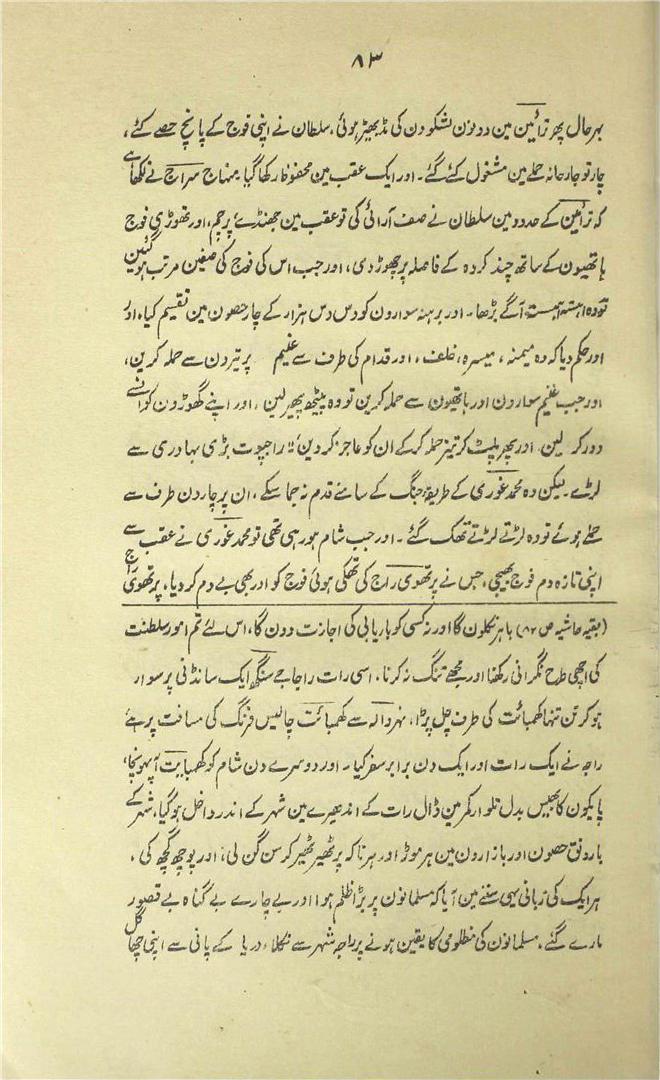 ۸۳
بہرحال پھر ترائین مین دونون لشکرون کی مڈبھیڑ ہوئی، سلطان نے اپنی فوج کے پانچ حصے کئے،
چار تو جارحانہ حملے مین مشغول کئے گئے۔ اور ایک عقب مین محفوظ رکھا گیا، منہاج سراج نے لکھا ہے
کہ ترائین کے حدود مین سلطان نے صف آرائی کی تو عقب مین جھنڈے پرچم، اور تھوڑی فوج
ہاتھیون کے ساتھ چند کروہ کے فاصلہ پر چھوڑ دی، اور جب اس کی فوج کی صفین مرتب ہو گئین
تو وہ اہستہ اہستہ آگے بڑھا۔ اور برہنہ سوارون کو دس دس ہزار کے چار حصون مین تقسیم کیا، اور
اور حکم دیا کہ وہ میمنہ، میسرہ، خلف، اور قدام کی طرف سے غنیم پر تیرون سے حملہ کرین،
اور جب غنیم سوارون اور ہاتھیون سے حملہ کرین تو وہ پیٹھ پھیر لین، اور اپنے گھوڑون کو انسے
دور کر لین۔ اور پھر پلٹ کر تیز حملہ کر کے ان کو عاجز کر دین"۔ راجپوت بڑی بہادری سے
لڑے۔ لیکن وہ محمد غوری کے طریقۂ جنگ کے سامنے قدم نہ جما سکے، ان پر چارون طرف سے
حملے ہوئے تو وہ لڑتے لڑتے تھک گئے۔ اور جب شام ہو رہی تھی تو محمد غوری نے عقب سے
اپنی تازہ دم فوج بھیجی، جس نے پرتھوی راج کی تھکی ہوئی فوج کو اور بھی بے دم کر دیا، پرتھوی راج
(بقیہ حاشیہ ص ۸۲) باہر نکلون گا اور نہ کسی کو باریابی کی اجازت دون گا، اس لئے تم امور سلطنت
کی اچھی طرح نگرانی رکھنا اور مجھے تنگ نہ کرنا، اسی رات راجا جے سنگھ ایک سانڈنی پر سوار
ہو کر تن تنہا کھمبائت کی طرف چل پڑا، نہروالہ سے کھمبائت چالیس فرنگ کی مسافت پر ہے
راجہ نے ایک رات اور ایک دن برابر سفر کیا۔ اور دوسرے دن شام کو کھمبایت آ پہونچا،
پایکون کا بھیس بدل تلوار کمر مین ڈال رات کے اندھیرے مین شہر کے اندر داخل ہو گیا، شہر کے
بارونق حصون اور بازارون مین ہر موڑ اور ہر ناکہ پر ٹھیر ٹھیر کر سن گن لی، اور پوچھ گچھ کی،
ہر ایک کی زبانی یہی سننے مین آیا کہ مسلمانون پر بڑا ظلم ہوا اور بے چارے بے گناہ بے قصور
مارے گئے، مسلمانون کی مظلومی کا یقین ہونے پر راجہ شہر سے نکلا، دریا کے پانی سے اپنی چھاگل